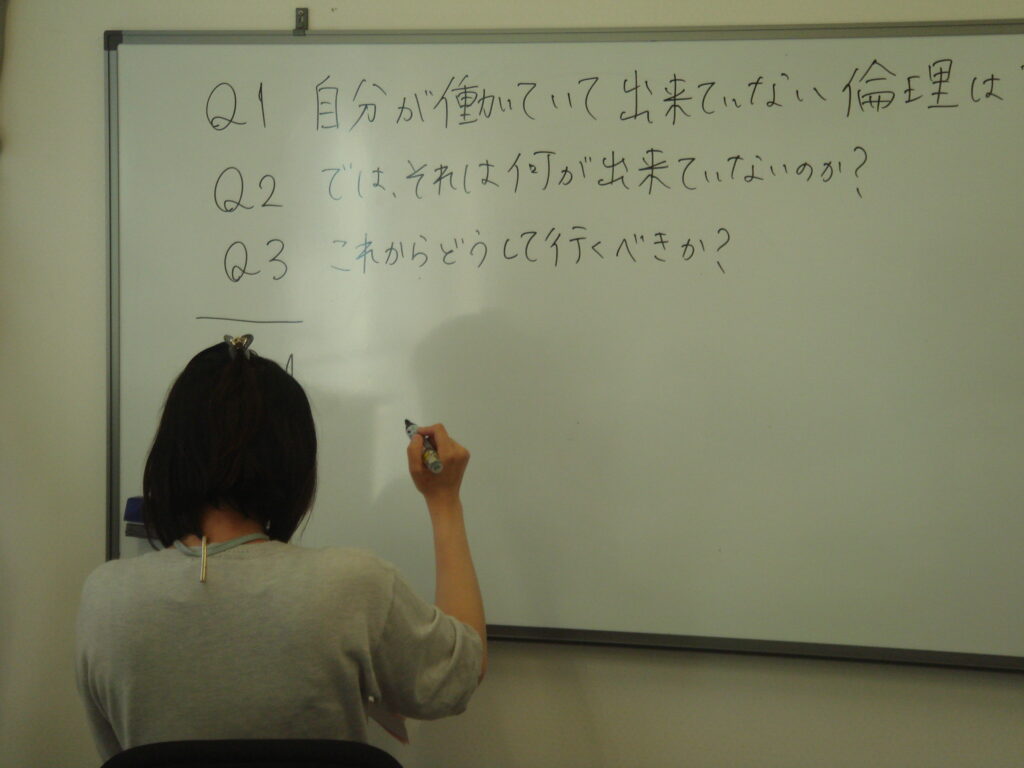 Q1 自分が働いていて出来ていない倫理は
Q2 では、それは何が出来ていないのか?
Q3 これからどうして行くべきか?